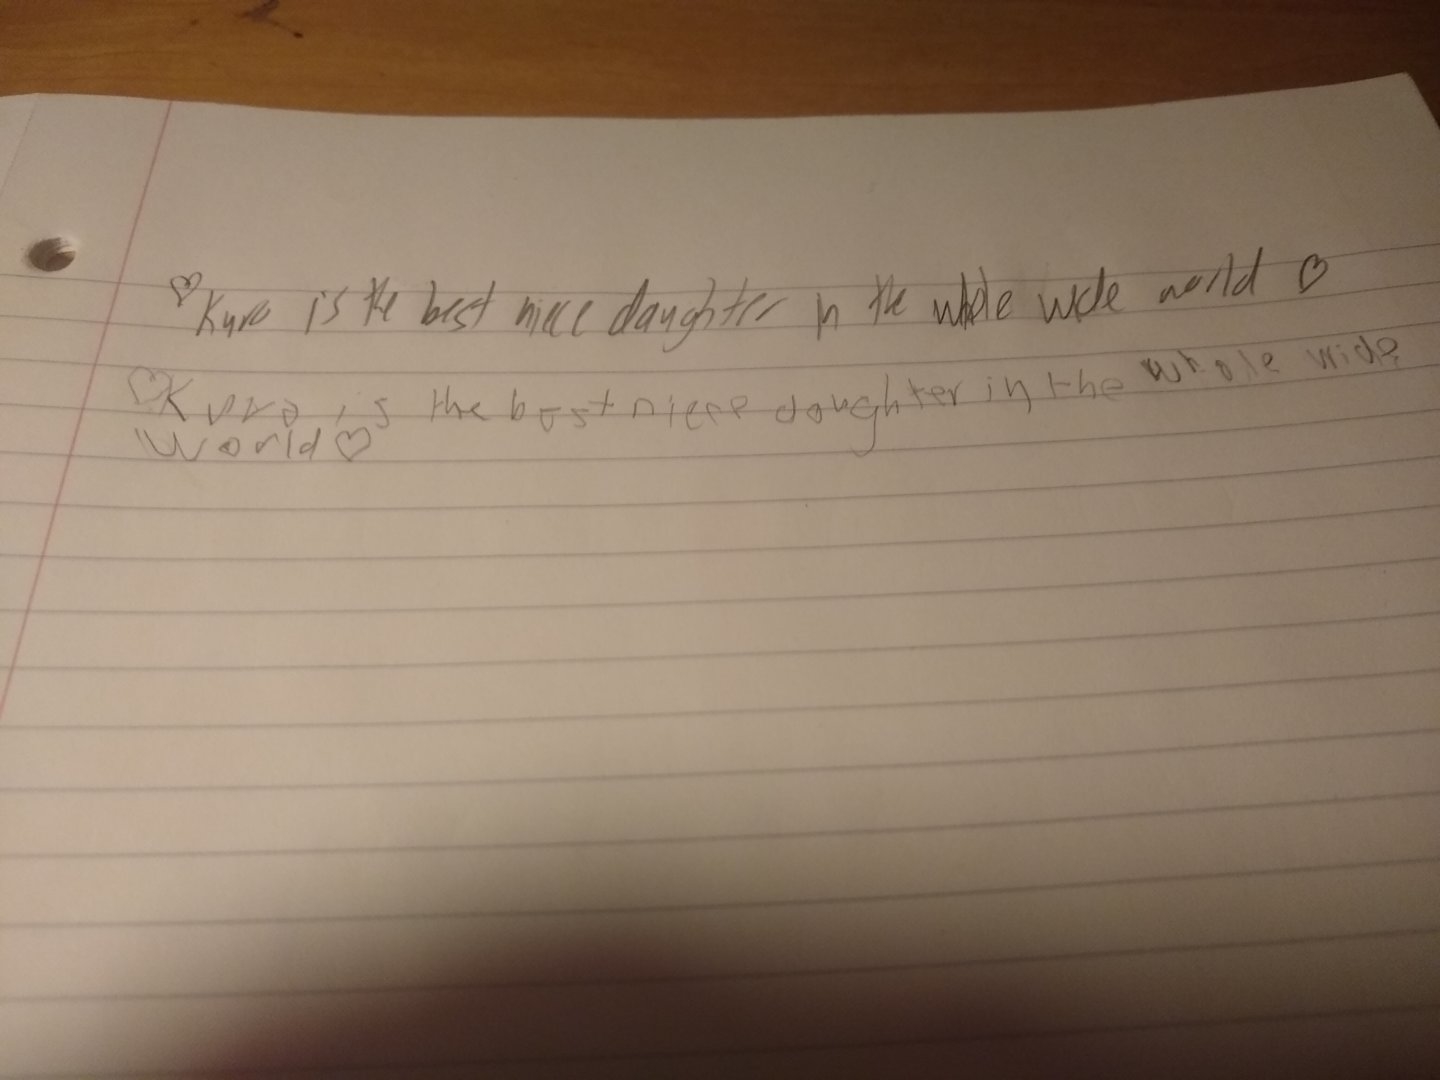 ♡Kuro is the best niece daughter in the whole wide world ♡
♡Kuro is the best niece daughter in the whole wide
World♡